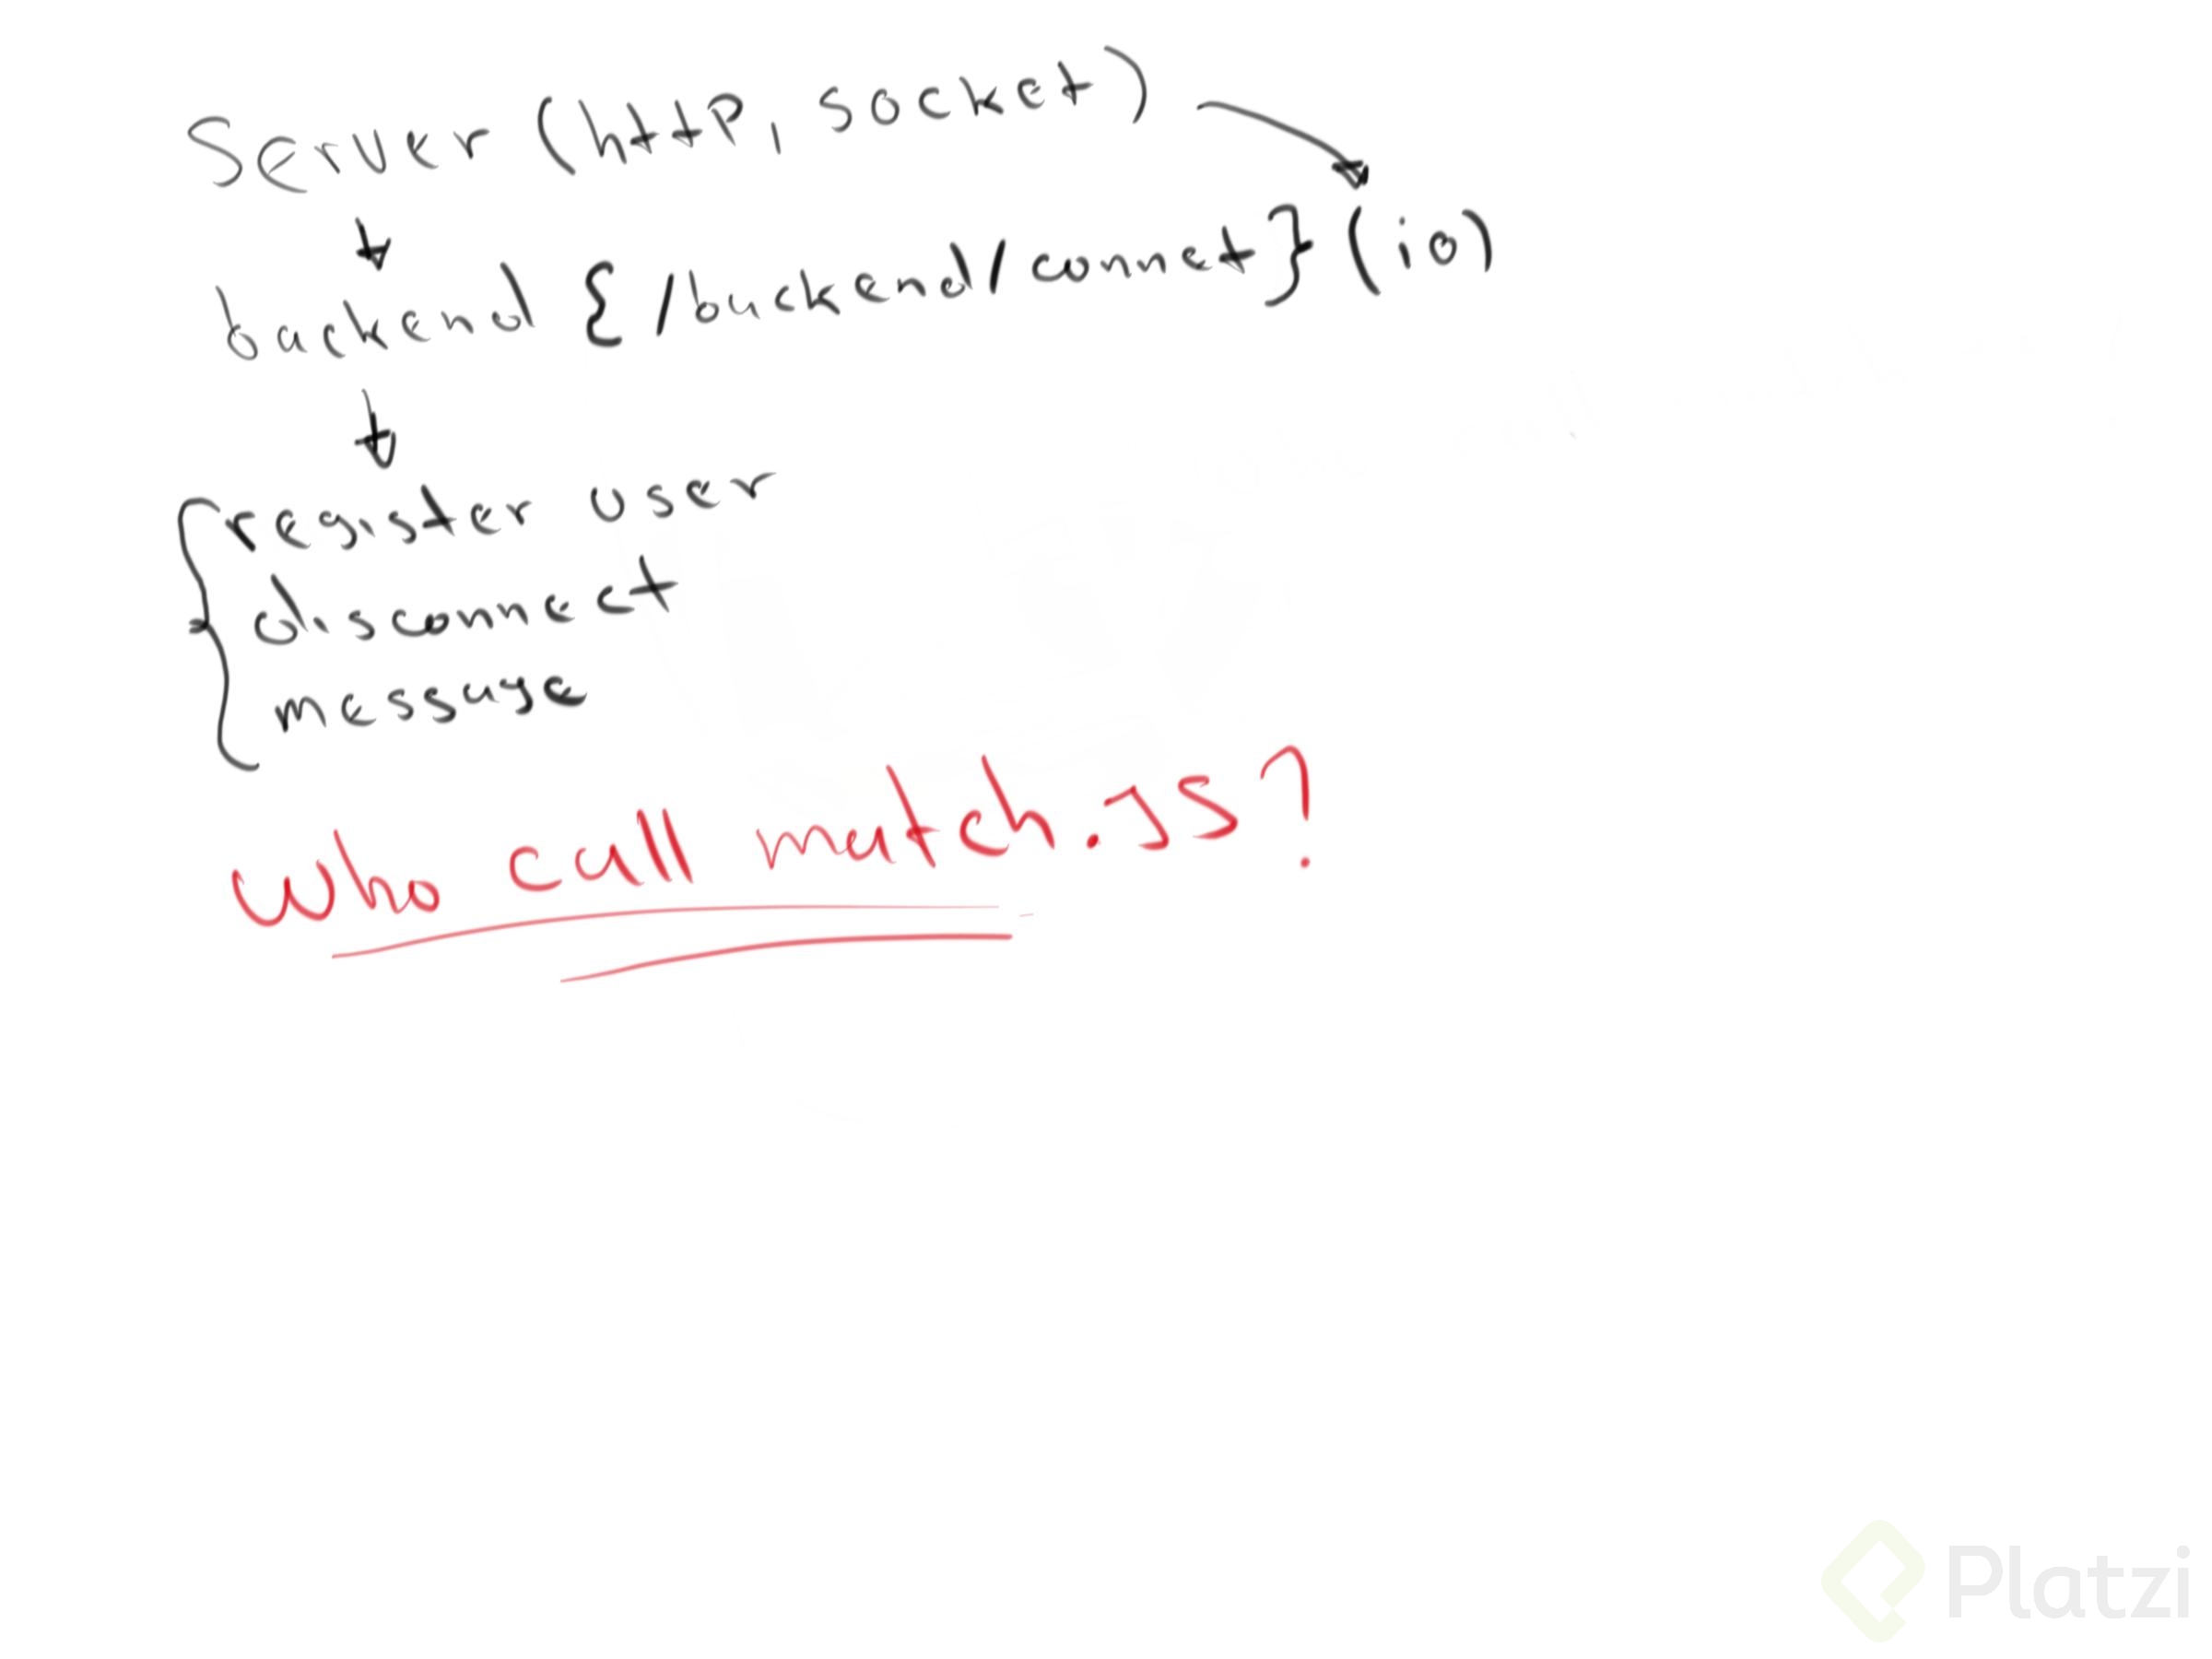 Server (http, socket)
backend {/backend/connet} (io)
register user
disconnect
message
Who call match.JS?
Platzi